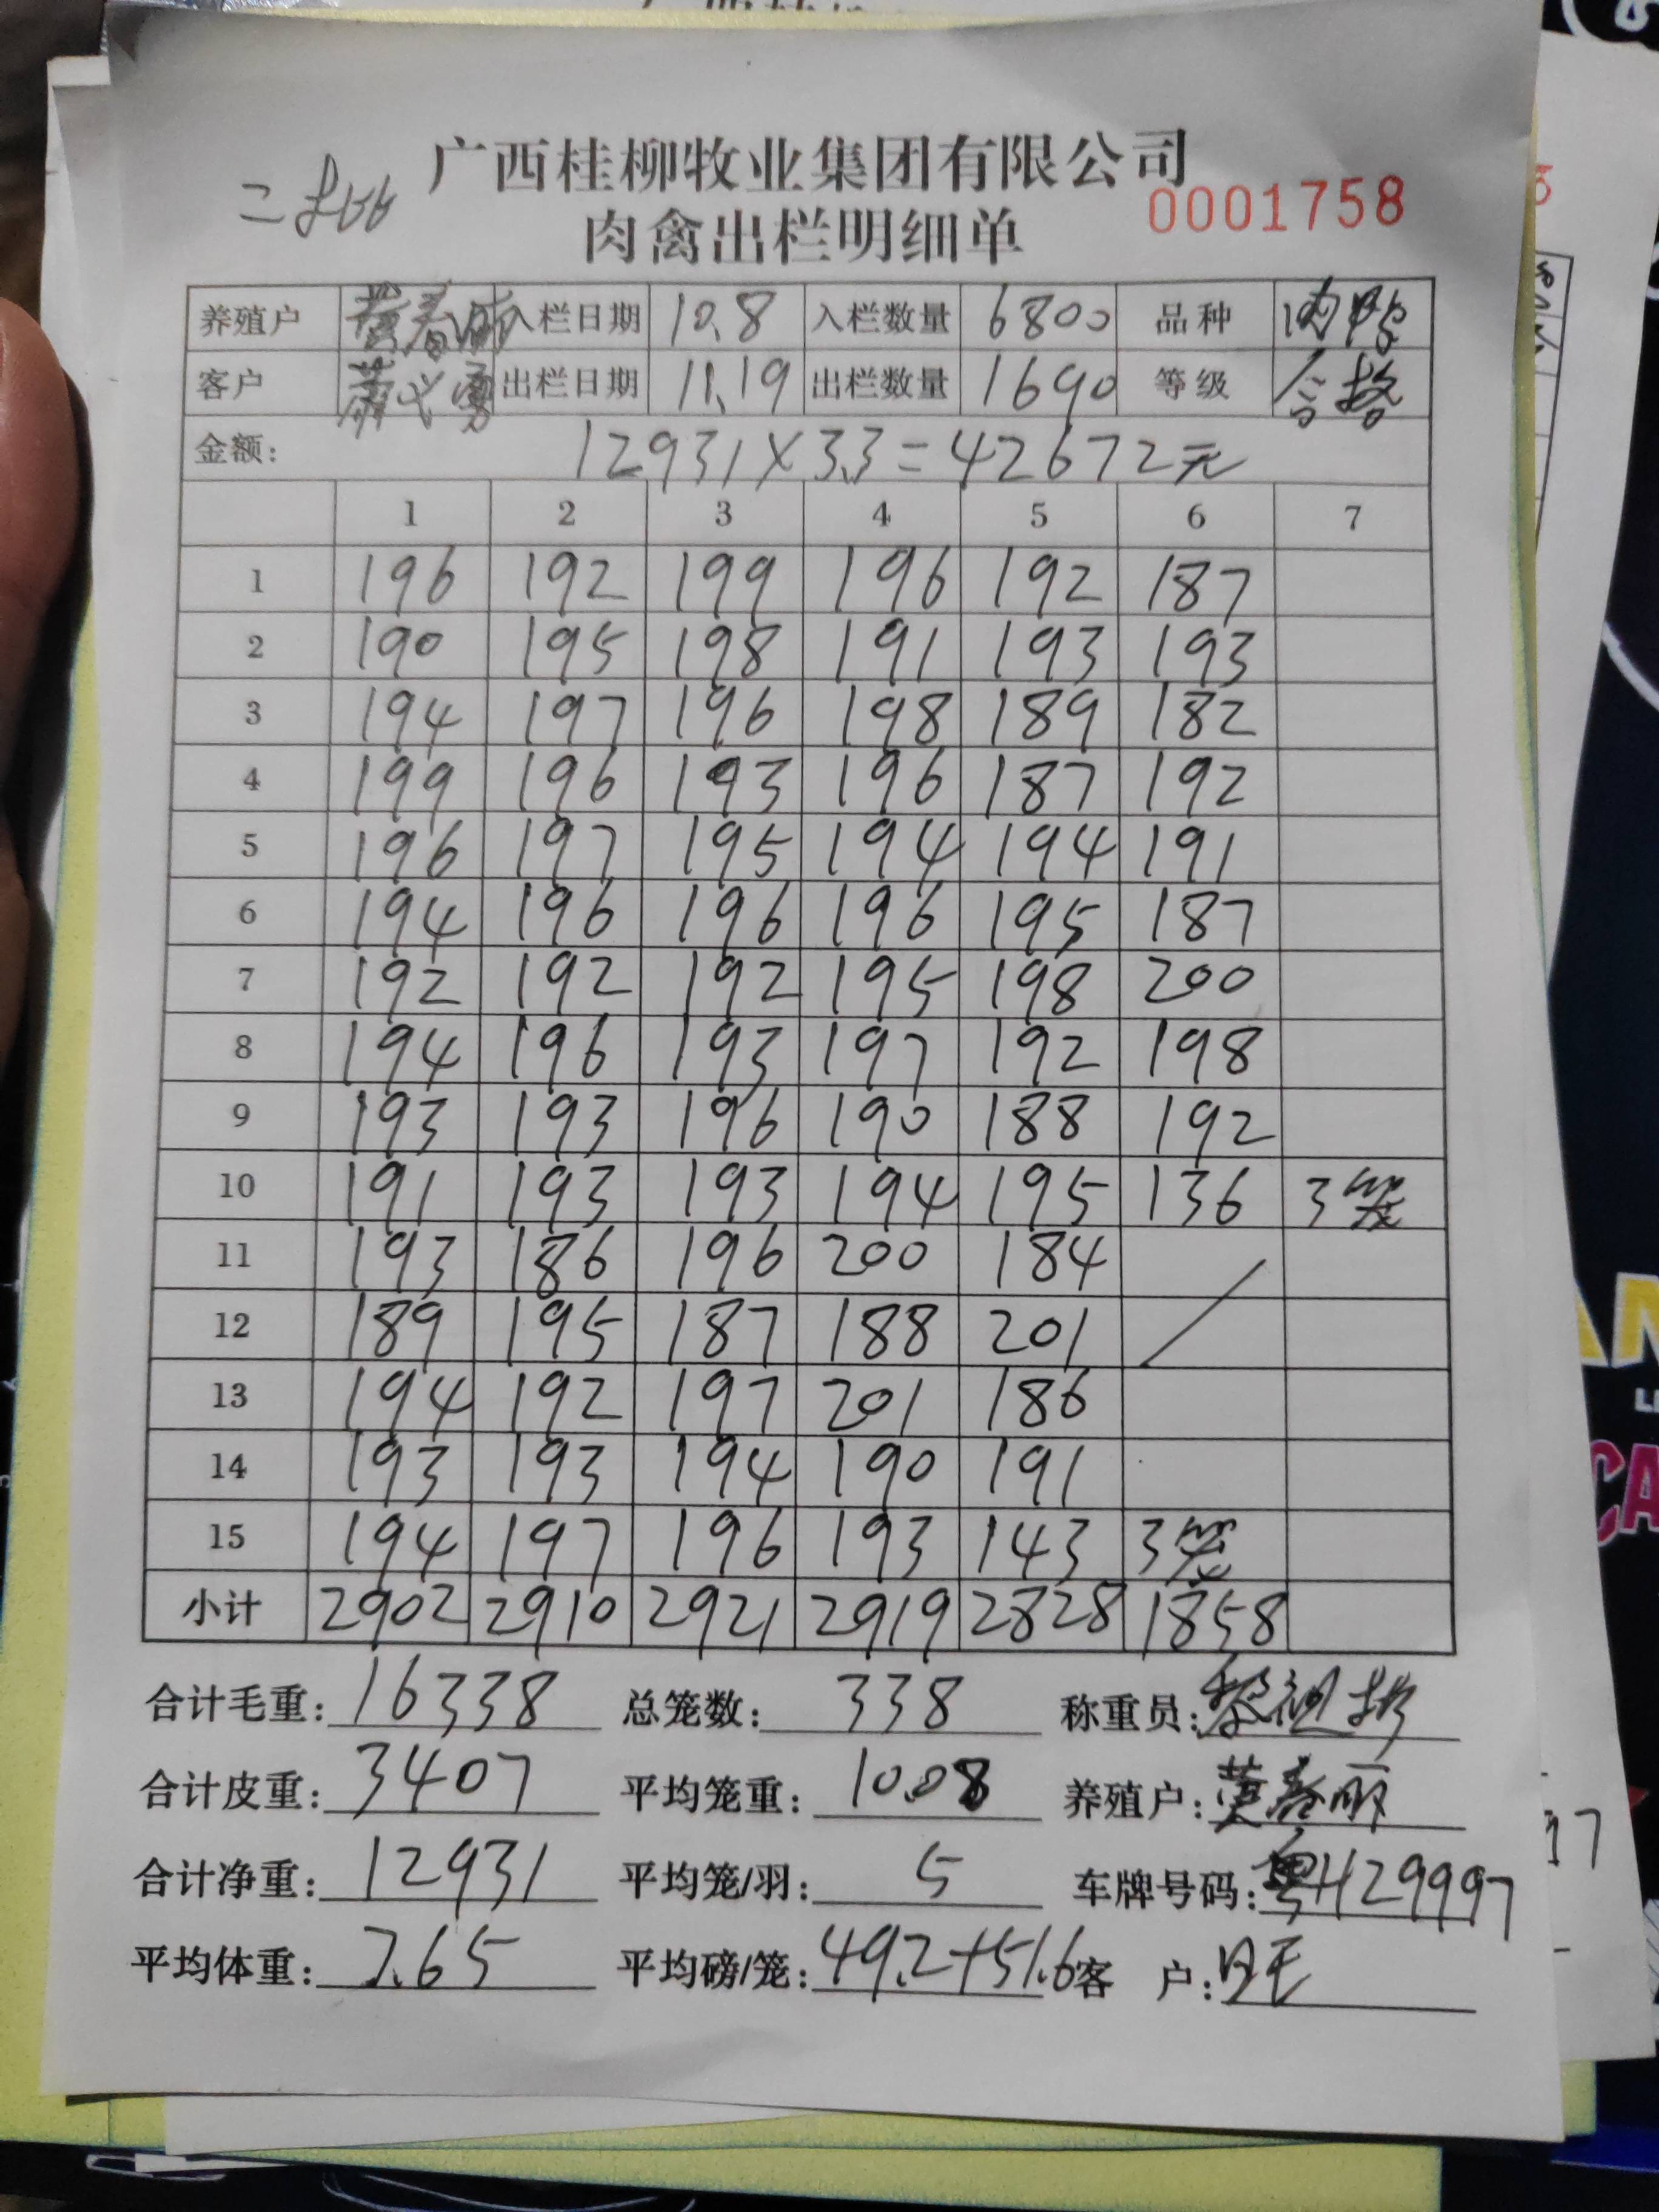 广西桂柳牧业集团有限公司
肉禽出栏明细单 0001758
养殖户 黄春丽 入栏日期 10.8 入栏数量 6800 品种 肉鸭
客户 出栏日期 11.19 出栏数量 1690 等级 合格
金额: 12931×3.3=42672元
1 2 3 4 5 6 7
1 196 192 199 196 192 187
2 190 195 198 191 193 193
3 194 197 196 198 189 182
4 199 196 193 196 187 192
5 196 197 195 194 194 191
6 194 196 196 196 195 187
7 192 192 192 195 198 200
8 194 196 193 197 192 198
9 193 193 196 190 188 192
10 191 193 193 194 195 136 3笼
11 193 186 196 200 184
12 189 195 187 188 201
13 194 192 197 201 186
14 193 193 194 190 191
15 194 197 196 193 143 3笼
小计 2902 2910 2921 2919 2828 1858
合计毛重: 16338 总笼数: 338 称重员:
合计皮重: 3407 平均笼重: 10.08 养殖户: 黄春丽
合计净重: 12931 平均笼/羽: 5 车牌号码: 粤H29997
平均体重: 7.65 平均磅/笼: 49.2+51.6 客 户: